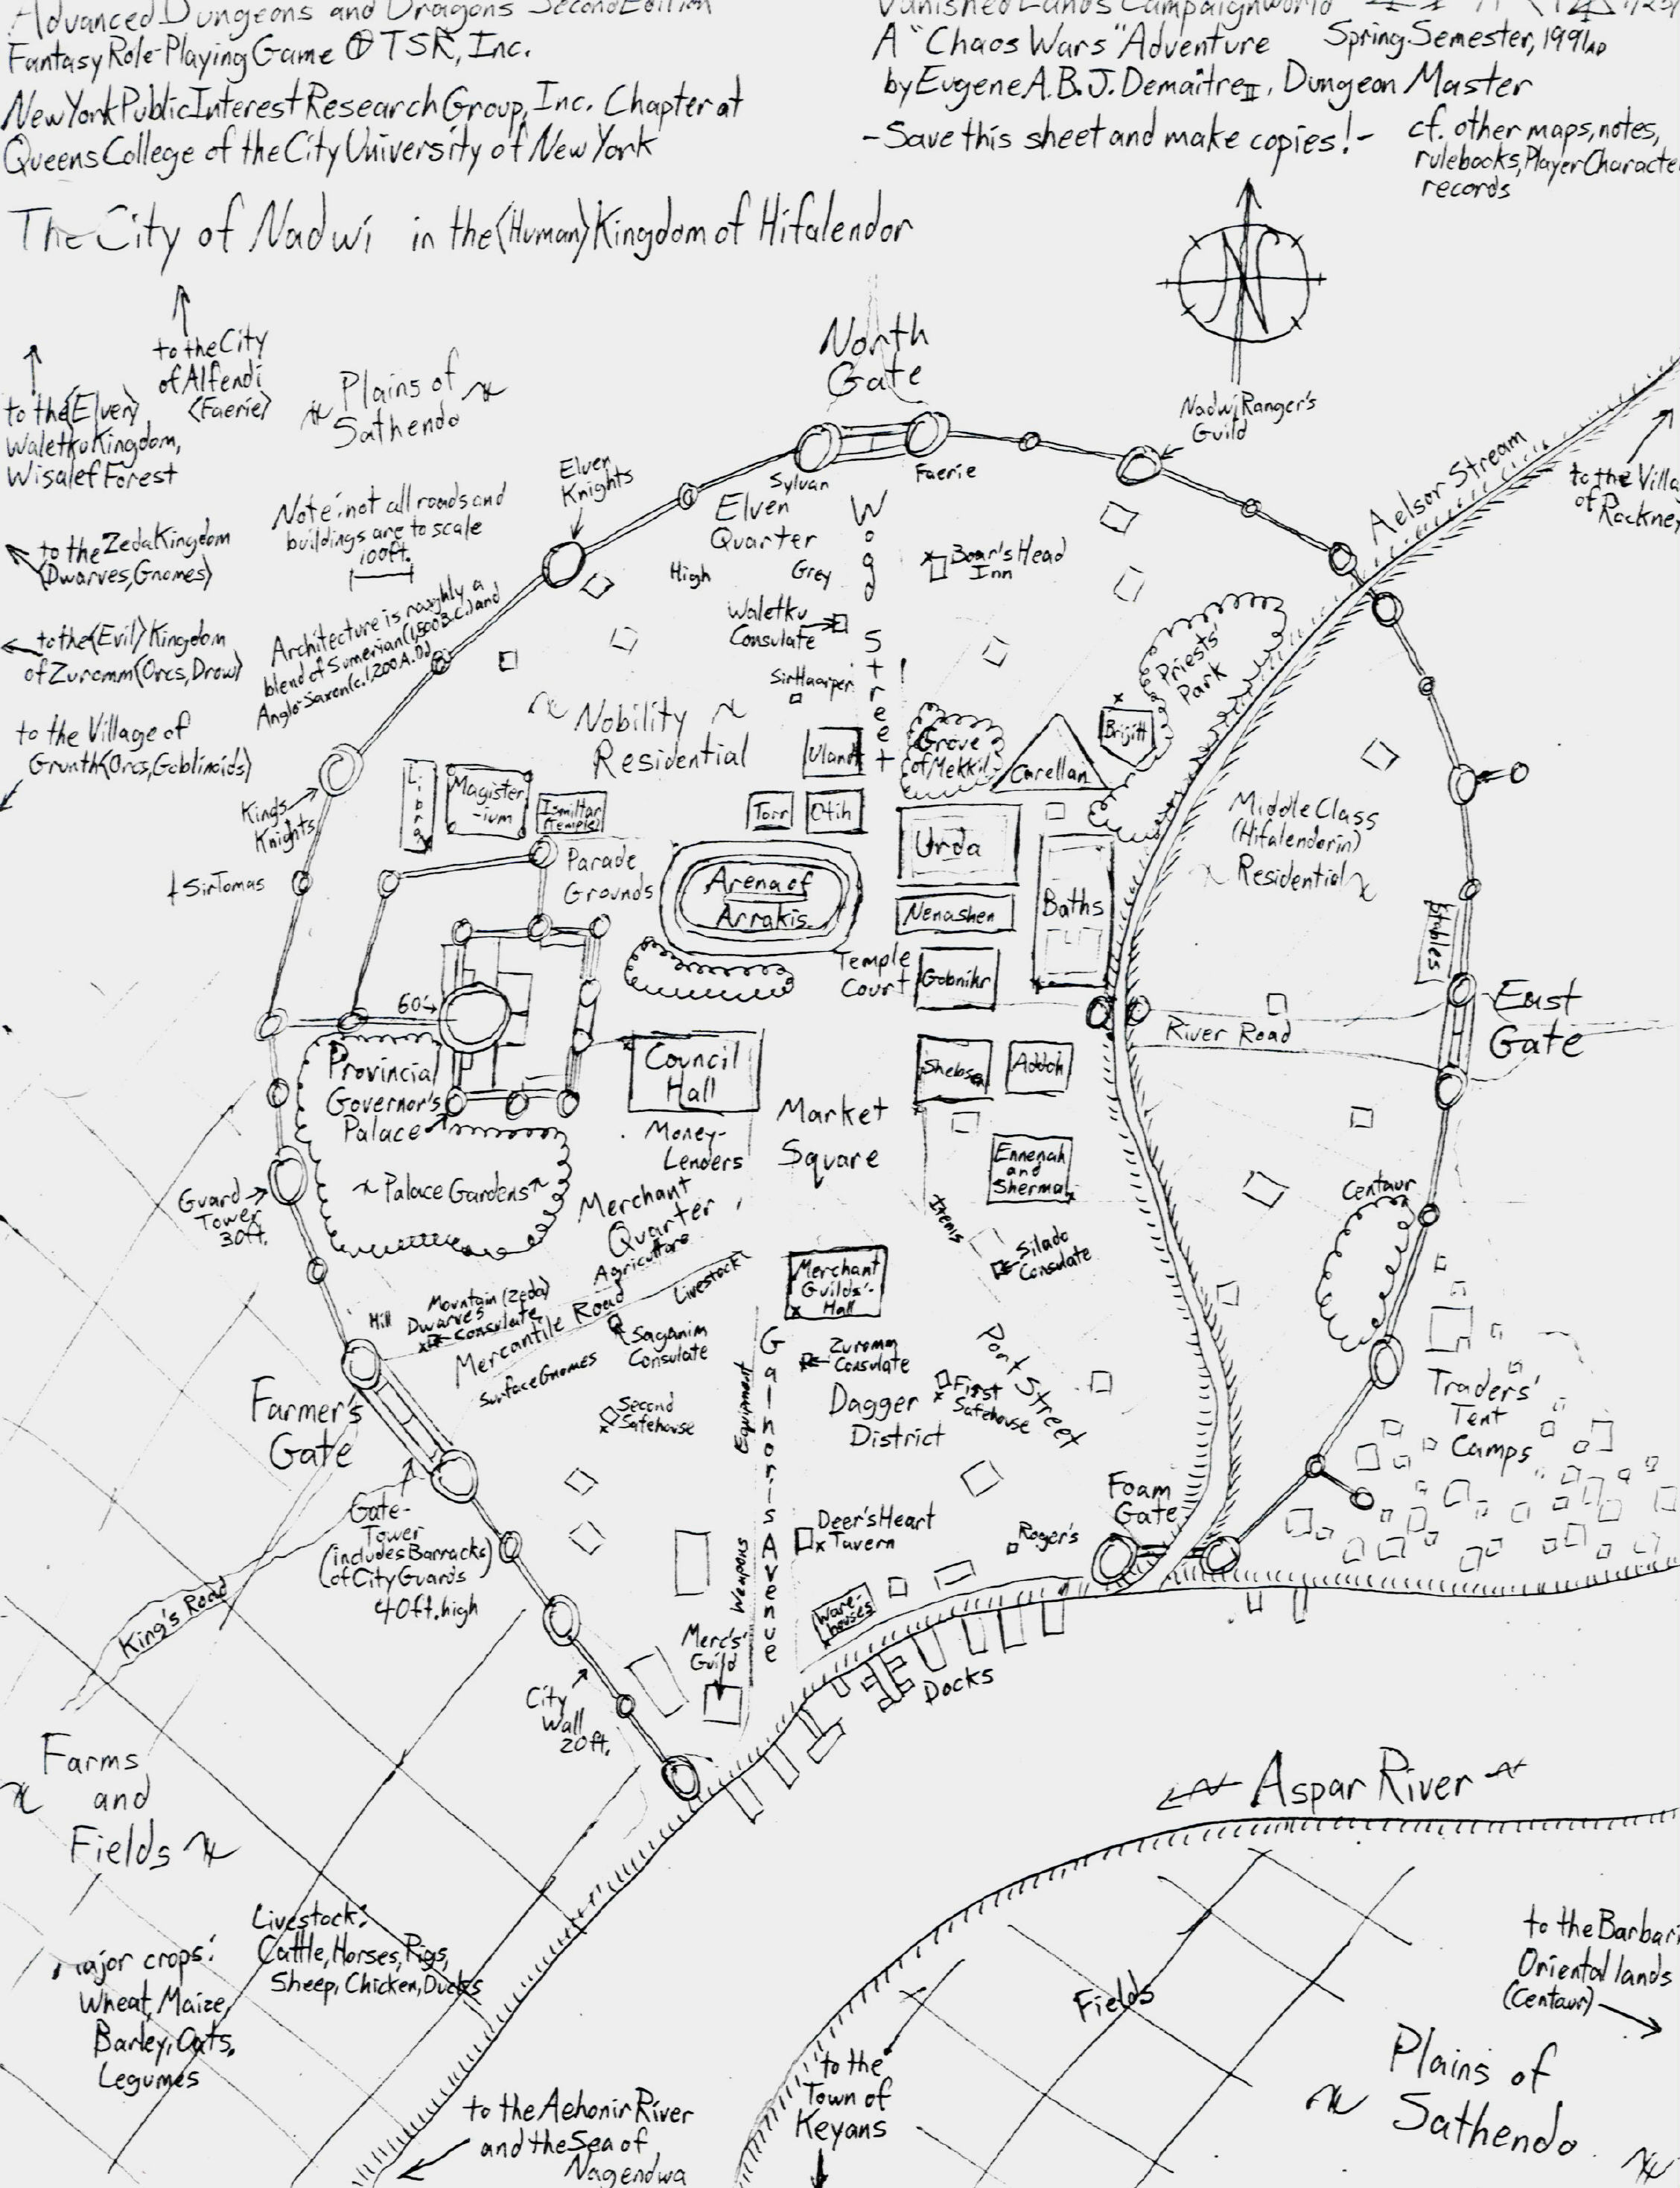 Advanced Dungeons and Dragons Second Edition
Fantasy Role-Playing Game ® TSR, Inc.
New York Public Interest Research Group, Inc. Chapter at
Queens College of the City University of New York
Vanished Lands Campaign World
A "Chaos Wars" Adventure Spring Semester, 1991 AD
by Eugene A.B.J. Demaître II, Dungeon Master
-Save this sheet and make copies!-
cf. other maps, notes,
rulebooks, Player Characte
records
The City of Nadwi in the (Human) Kingdom of Hifalendor
N
to the City
of Alfendi
<Faerie>
to the (Elven)
Waletku Kingdom,
Wisalef Forest
Plains of
Sathendo
North
Gate
Nadwi Ranger's
Guild
Aelsor Stream
to the Villa
of Rockne
to the Zeda Kingdom
(Dwarves, Gnomes)
Note: not all roads and
buildings are to scale
100ft.
Elven
Knights
Sylvan
Faerie
Elven
Quarter
High
Grey
Wood Street
Boar's Head
Inn
Waletku
Consulate
to the (Evil) Kingdom
of Zuromm (Orcs, Drow)
Architecture is roughly a
blend of Sumerian (1,500 B.C.) and
Anglo-Saxon (c.1,200 A.D.)
to the Village of
Grunth (Orcs, Goblinoids)
Sir Haarper
Nobility
Residential
Uland
Grove
of Mekkil
Corellan
Brigitt
Priests'
Park
King's
Knights
Library
Magister
-ium
Ismiltar
(Temple)
Torr
Otih
Urda
Middle Class
(Hifalendorin)
Residential
Sir Tomas
Parade
Grounds
Arena of
Arrakis
Nenashen
Baths
Stables
Temple
Court
Gobnikr
60'
East
Gate
River Road
Provincial
Governor's
Palace
Council
Hall
Shebsa
Addoh
Market
Square
Money-
Lenders
Ennenah
and
Sherma
Palace Gardens
Guard
Tower
30ft.
Merchant
Quarter
Agriculture
Livestock
Items
Silado
Consulate
Centaur
Merchant
Guilds'-
Hall
Hill
Mountain (Zeda)
Dwarves
Consulate
Mercantile Road
Surface Gnomes
Saganim
Consulate
Zuromm
Consulate
Port Street
First
Safehouse
Dagger
District
Gainoris Avenue
Equipment
Second
Safehouse
Farmer's
Gate
Traders'
Tent
Camps
Gate-
Tower
(includes Barracks)
of City Guards
40ft. high
King's Road
Weapons
Deer's Heart
Tavern
Roger's
Foam
Gate
Ware-
houses
Merc's'
Guild
City
Wall
20ft.
Docks
Aspar River
Farms
and
Fields
Livestock:
Cattle, Horses, Pigs,
Sheep, Chicken, Ducks
major crops:
Wheat, Maize,
Barley, Oats,
Legumes
Fields
to the Barbari
Oriental lands
(Centaur)
Plains of
Sathendo
to the
Town of
Keyans
to the Aehonir River
and the Sea of
Nagendwa